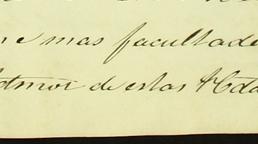 e mas facultade
dmor de estas Hda